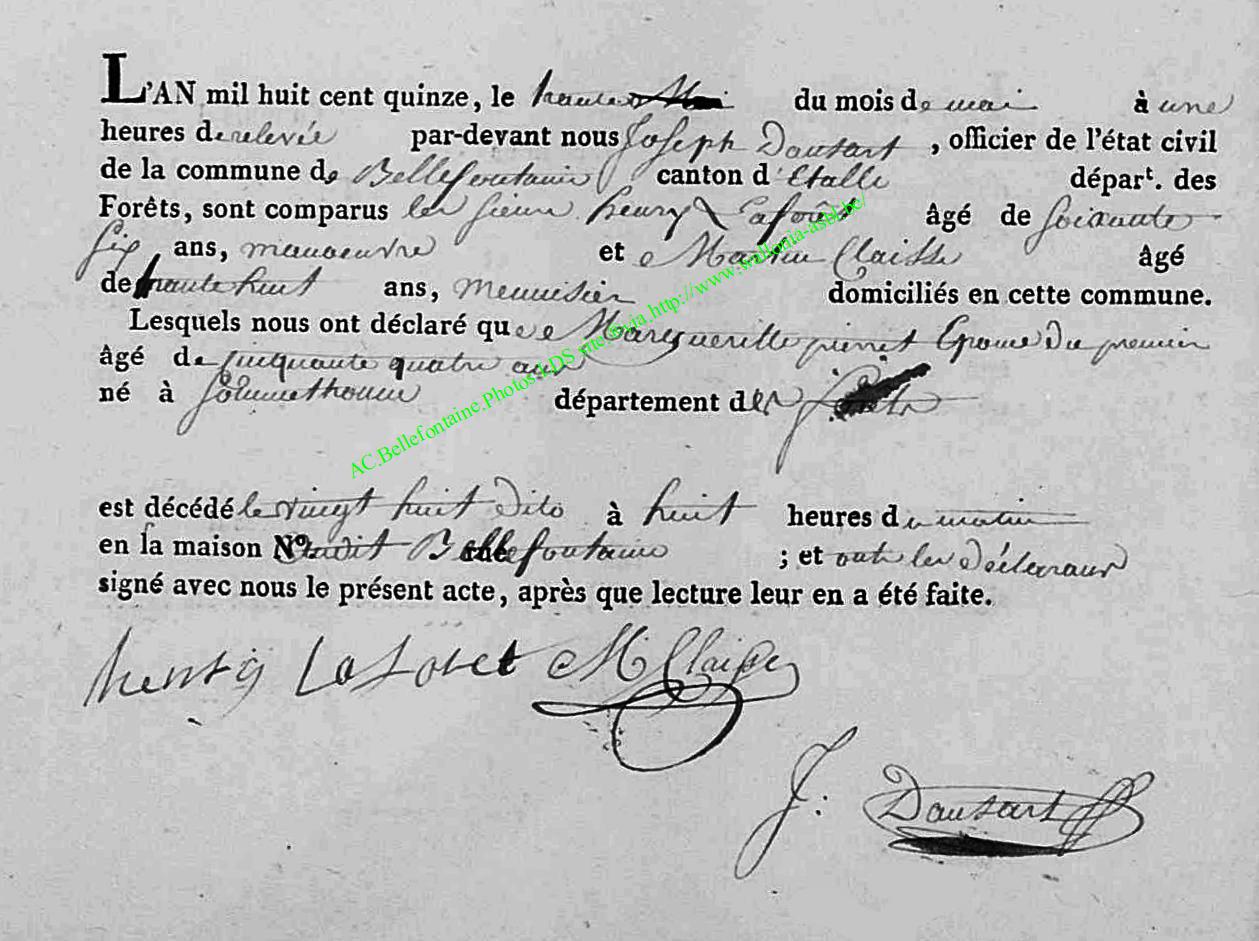 L'AN mil huit cent quinze, le trente du mois de mai à une
heures de relevée par-devant nous Joseph Dausart, officier de l'état civil
de la commune de Bellefontaine canton d'Etalle départ. des
Forêts, sont comparus les sieurs henry Laforêt âgé de soixante
six ans, manoeuvre et Martin Claisse âgé
de trente huit ans, menuisier domiciliés en cette commune.
Lesquels nous ont déclaré que Margueritte pierret Epouse du premier
âgé de cinquante quatre ans
né à département des
est décédé le vingt huit dito à huit heures du matin
en la maison No audit Bellefontaine ; et ont les déclarans
signé avec nous le présent acte, après que lecture leur en a été faite.
henry Laforet M Claisse
J: Dausart
AC.Bellefontaine.Photos LDS site via http://www.wallonia-asbl.be/